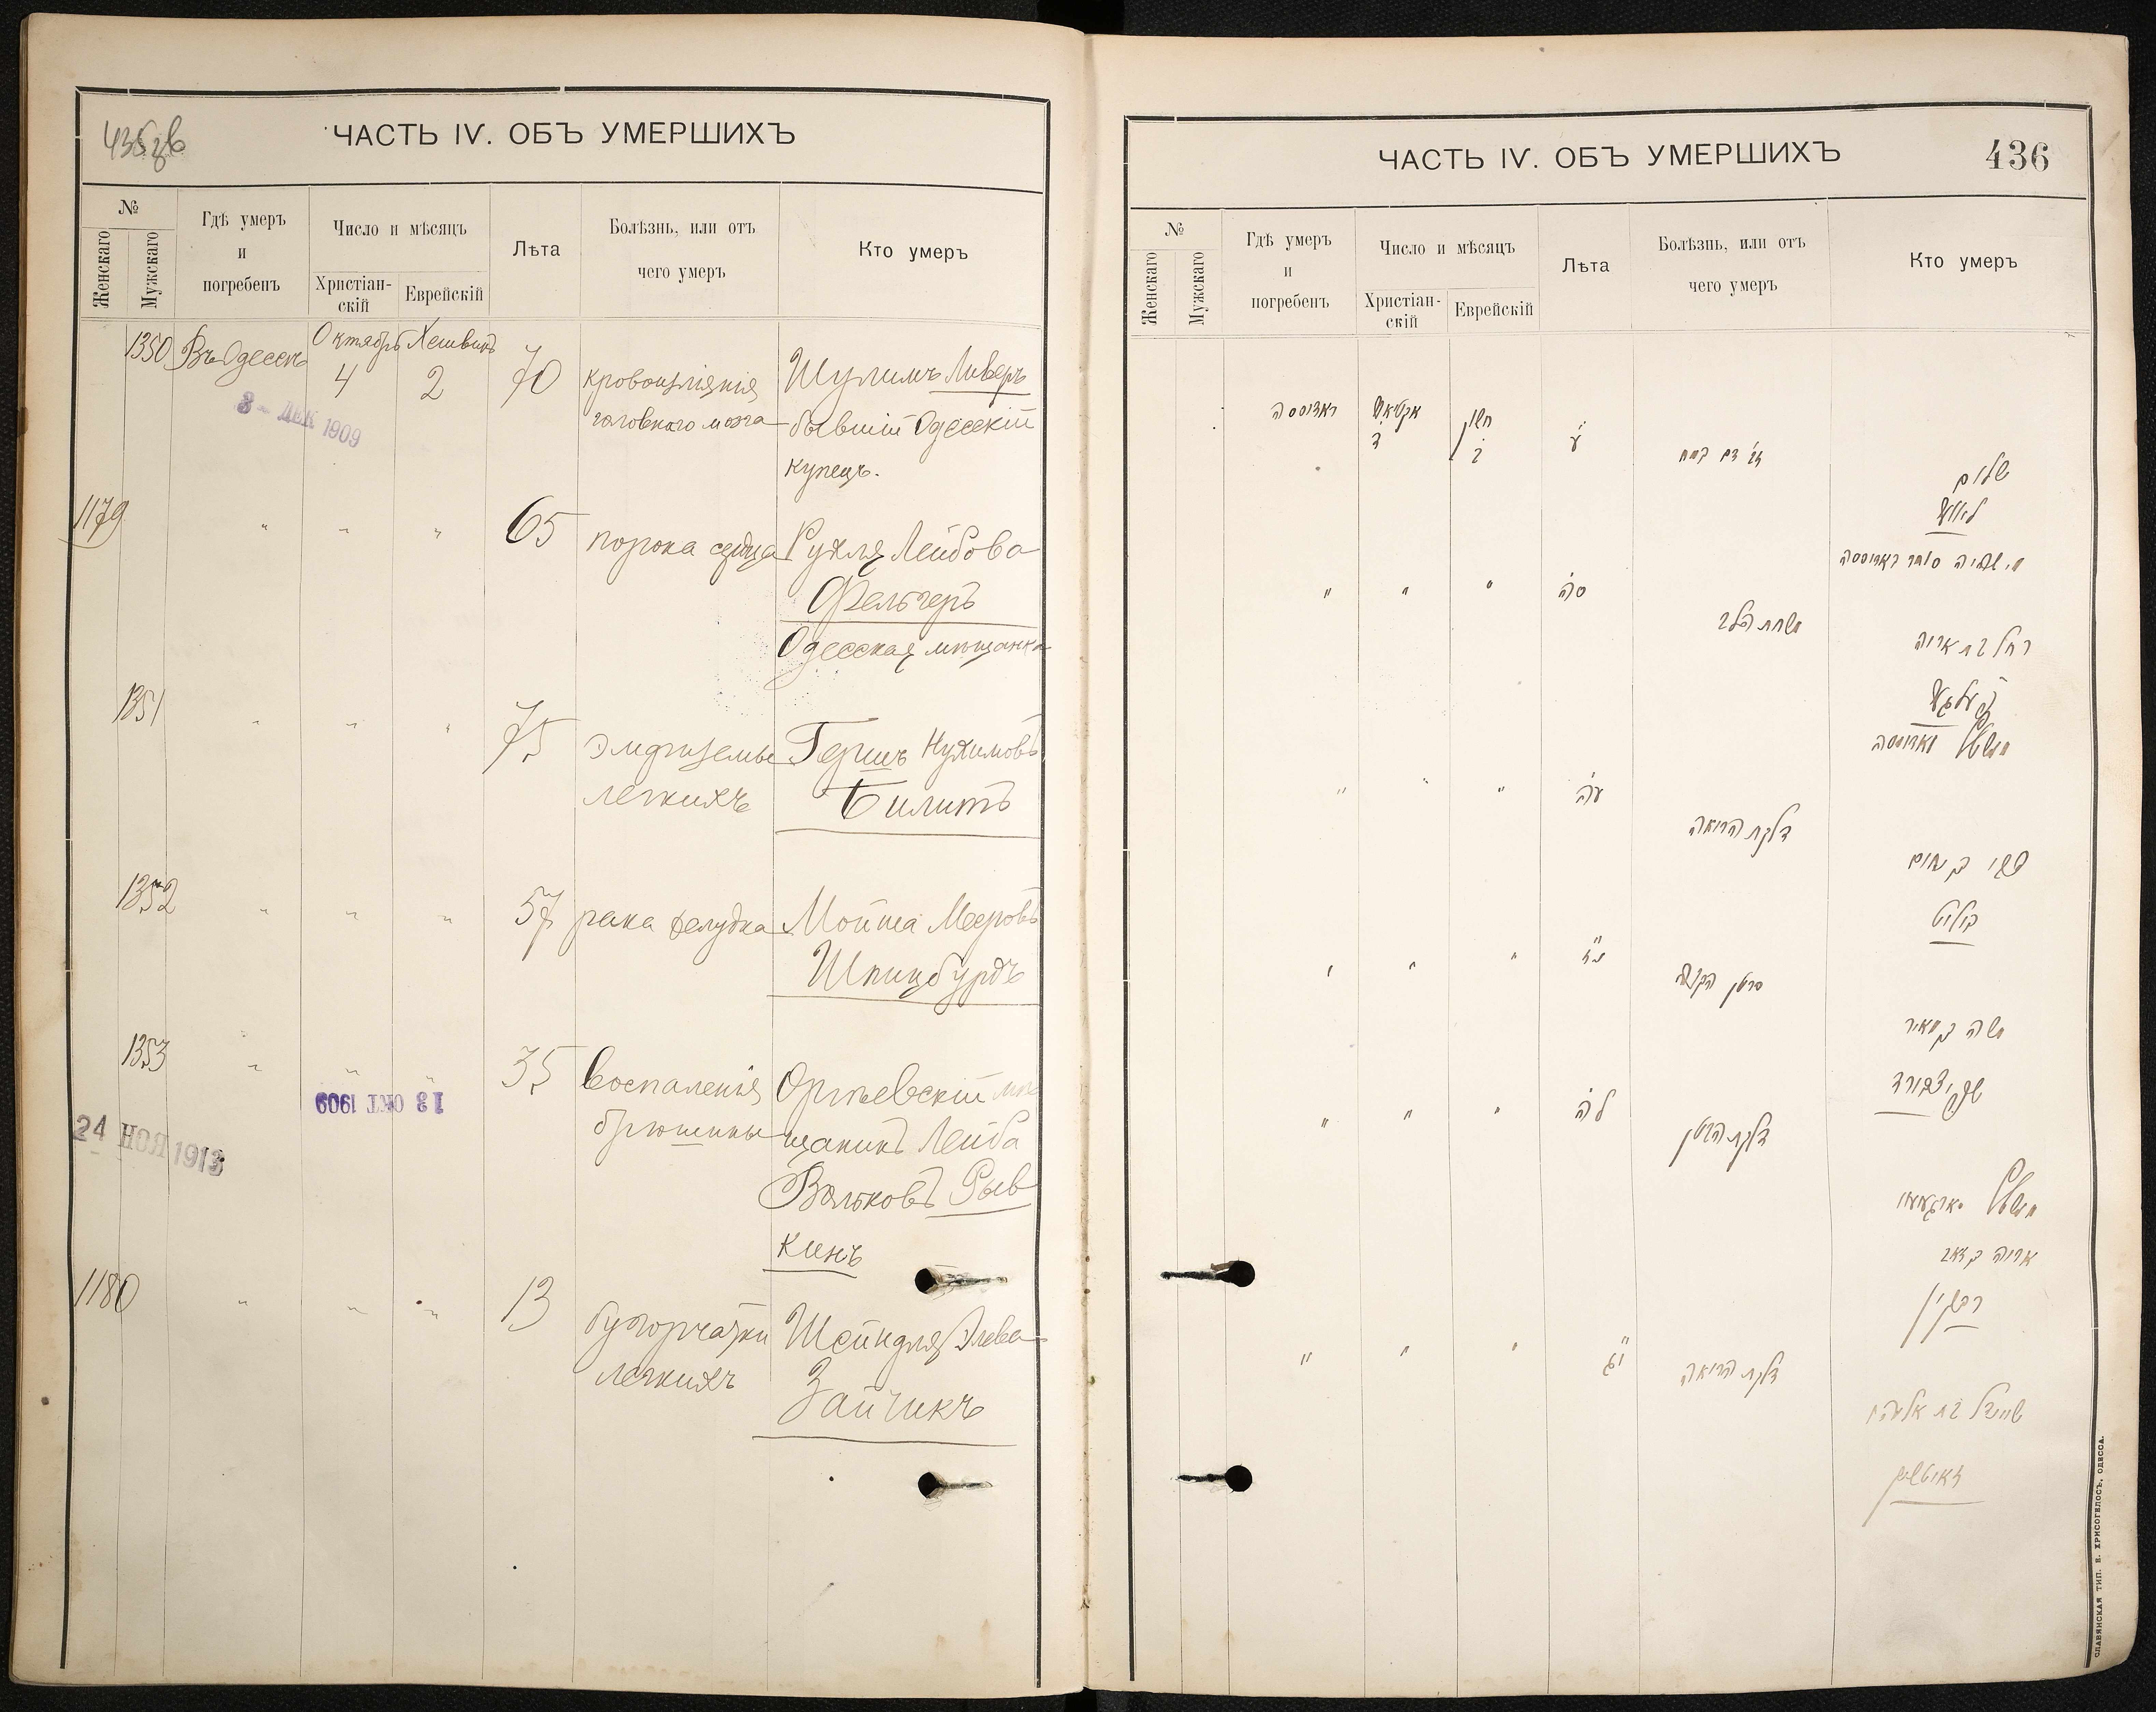 435 зв
ЧАСТЬ IV. ОБЪ УМЕРШИХЪ
№
Женскаго
Мужскаго
Гдѣ умеръ
и
погребенъ
Число и мѣсяцъ
Христіан-
скій
Еврейскій
Лѣта
Болѣзнь, или отъ
чего умеръ
Кто умеръ
1350 Въ Одессѣ Октябрь Хешвинъ
4 2 70 кровоизліянія Шулимъ Ливеръ
головного мозга бывшій Одесскій
купецъ.
3 - ДЕК 1909
1179 " " " 65 порока сердца Рухля Лейбова
Фельгеръ
Одесская мѣщанка
1351 " " " 75 эмфиземы Гершъ Нухимовъ
легкихъ Билитъ
1352 " " " 57 рака желудка Мойша Мееровъ
Шпицбурдъ
1353 " " " 35 воспаленія Оргѣевскій мѣ
13 ОКТ 1909
брюшины щанинъ Лейба
24 НОЯ 1913
Вольковъ Рыв
кинъ
1180 " " " 13 бугорчатки Шейндля Элева
легкихъ Зайчикъ
ЧАСТЬ IV. ОБЪ УМЕРШИХЪ
436
№
Женскаго
Мужскаго
Гдѣ умеръ
и
погребенъ
Число и мѣсяцъ
Христіан-
скій
Еврейскій
Лѣта
Болѣзнь, или отъ
чего умеръ
Кто умеръ
באדעססא
ד ב ע
שלום
" " " סה
רחל בת אריה
" " " עה
דלקת הריאה
צבי בן נחום
ביליט
" " " נז
סרטן הקיבה
משה בן מאיר
שפיצבורד
" " " לה
דלקת הבטן
אריה בן זאב
ריבקין
" " " יג
דלקת הריאה
שיינדל בת
זאיטשיק
СЛАВЯНСКАЯ ТИП. Е. ХРИСОГЕЛОСЪ, ОДЕССА.